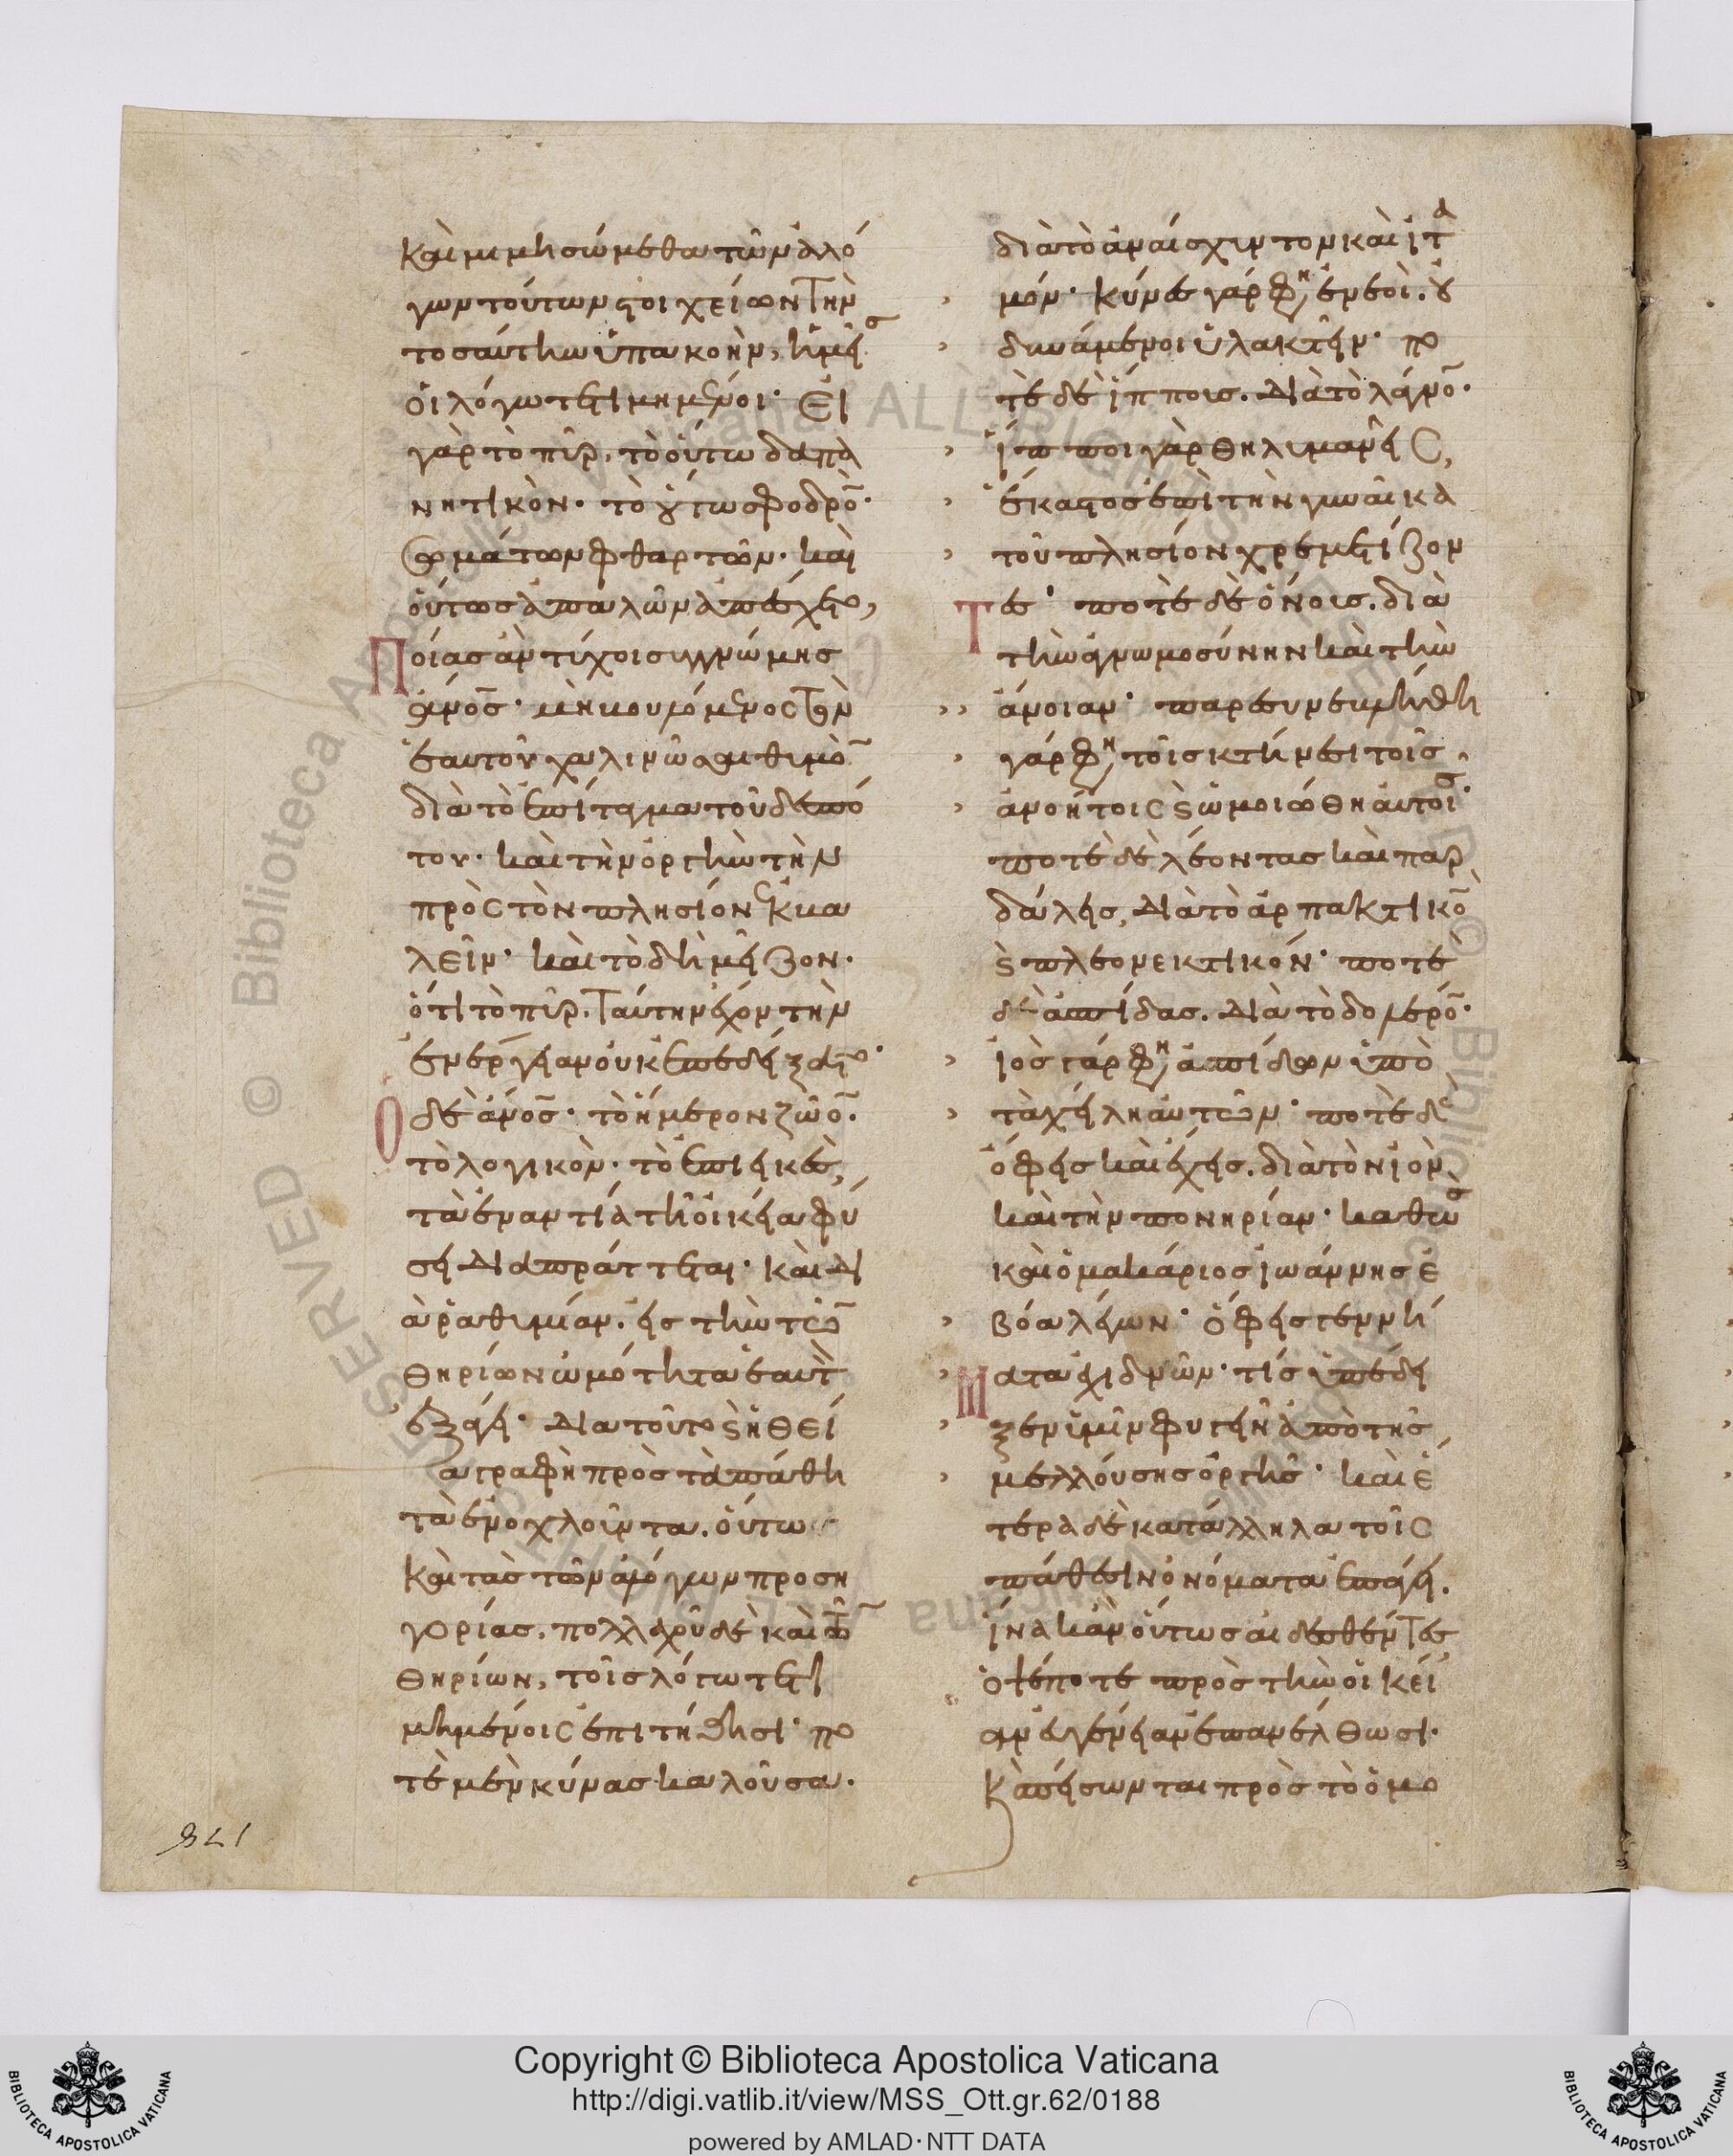 καὶ μιμησώμεθα τῶν ἀλό
γων τούτων στοιχείων τὴν
τοσαύτην ὑπακοὴν, ἡμεῖς
οἱ λόγω τετιμημένοι· εἰ
γὰρ τὸ πῦρ, τὸ οὕτω δαπα
νητικὸν· τὸ οὕτω σφοδρὸ̄·
σωμάτων φθαρτῶν· καὶ
οὕτως ἁπαλῶν ἀπέσχετο,
Ποίας ἂν τύχοι συγγνώμης
ἄνο̄ς· μὴ κινούμενος τὸν
ἑαυτοῦ χαλινῶσαι θυμὸ̄
διὰ τὸ ἐπίταγμα τοῦ δεσπό
του· καὶ τὴν ὀργὴν τὴν
πρὸς τὸν πλησίον ἐκκα
λεῖν· καὶ τὸ δὴ μεῖζον·
ὅτι τὸ πῦρ, ταύτην ἔχον τὴν
ἐνέργειαν οὐκ ἐπεδείξατο·
Ὁ δὲ ἄνο̄ς· τὸ ἥμερον ζῶο̄·
τὸ λογικὸν· τὸ ἐπιεικὲς,
τὰ ἐναντία τῆ οἰκεία φύ
σει διαπράττεται· καὶ δι
ὰ ῥαθυμίαν, εἰς τὴν τῶ̄
θηρίων ὠμότητα ἑαυτ̀
ἐξάγει· διὰ τοῦτο ϛ̀ ἡ θεί
α γραφὴ πρὸς τὰ πάθη
τὰ ἐνοχλοῦντα, οὕτω
καὶ τὰς τῶν ἀλόγων προση
γορίας, πολλαχοῦ δὲ καὶ τῶ̄
θηρίων, τοῖς λόγω τετι
μημένοις ἐπιτήθησι· πο
τὲ μὲν κύνας καλοῦσα·
διὰ τὸ ἀναίσχυντον καὶ ἰτα
μόν· κύνες γάρ φη ἐνεοὶ, οὐ
δυνάμενοι ὑλακτεῖν· πο
τὲ δὲ ἵππους, διὰ τὸ λάγνο̄·
ἵπποι γὰρ θηλυμανεῖς,
ἕκαστος ἐπὶ τὴν γυναῖκα
τοῦ πλησίον χρεμετίζον
Τες· ποτὲ δὲ ὄνους, διὰ
τὴν ἀγνωμοσύνην καὶ τὴν
ἄνοιαν· παρασυνεβλήθη
γάρ φη τοῖς κτήνεσι τοῖς
ἀνοήτοις ϛ̀ ὡμοιώθη αὐτοῖς·
ποτὲ δὲ λέοντας καὶ παρ
δάλεις, διὰ τὸ ἁρπακτικὸ̄
ϛ̀ πλεονεκτικόν· ποτὲ
δὲ ἀσπίδας, διὰ τὸ δολερό̄·
ἰὸς γάρ φη ἀσπίδων ὑπὸ
τὰ χείλη αὐτῶν· ποτὲ δὲ
ὄφεις καὶ ἔχεις, διὰ τὸν ἰὸν
καὶ τὴν πονηρίαν· καθὼς
καὶ ὁ μακάριος ἰωάννης ἐ
βόα λέγων· ὄφεις γεννή
Ματα ἐχιδνῶν· τίς ὑπέδει
ξεν ὑμῖν φυγεῖν ἀπὸ τῆς
μελλούσης ὀργῆς· καὶ ἕ
τερα δὲ κατάλληλα τοῖς
πάθεσιν ὀνόματα ἐπάγει·
ἵνα κἂν οὕτως αἰδεσθέντες
ὀψέποτε πρὸς τὴν οἰκεί
αν εὐγένειαν ἐπανέλθωσι·
κἀπείσωνται πρὸς τὸ ὁμο
178
Copyright © Biblioteca Apostolica Vaticana
http://digi.vatlib.it/view/MSS_Ott.gr.62/0188
powered by AMLAD·NTT DATA